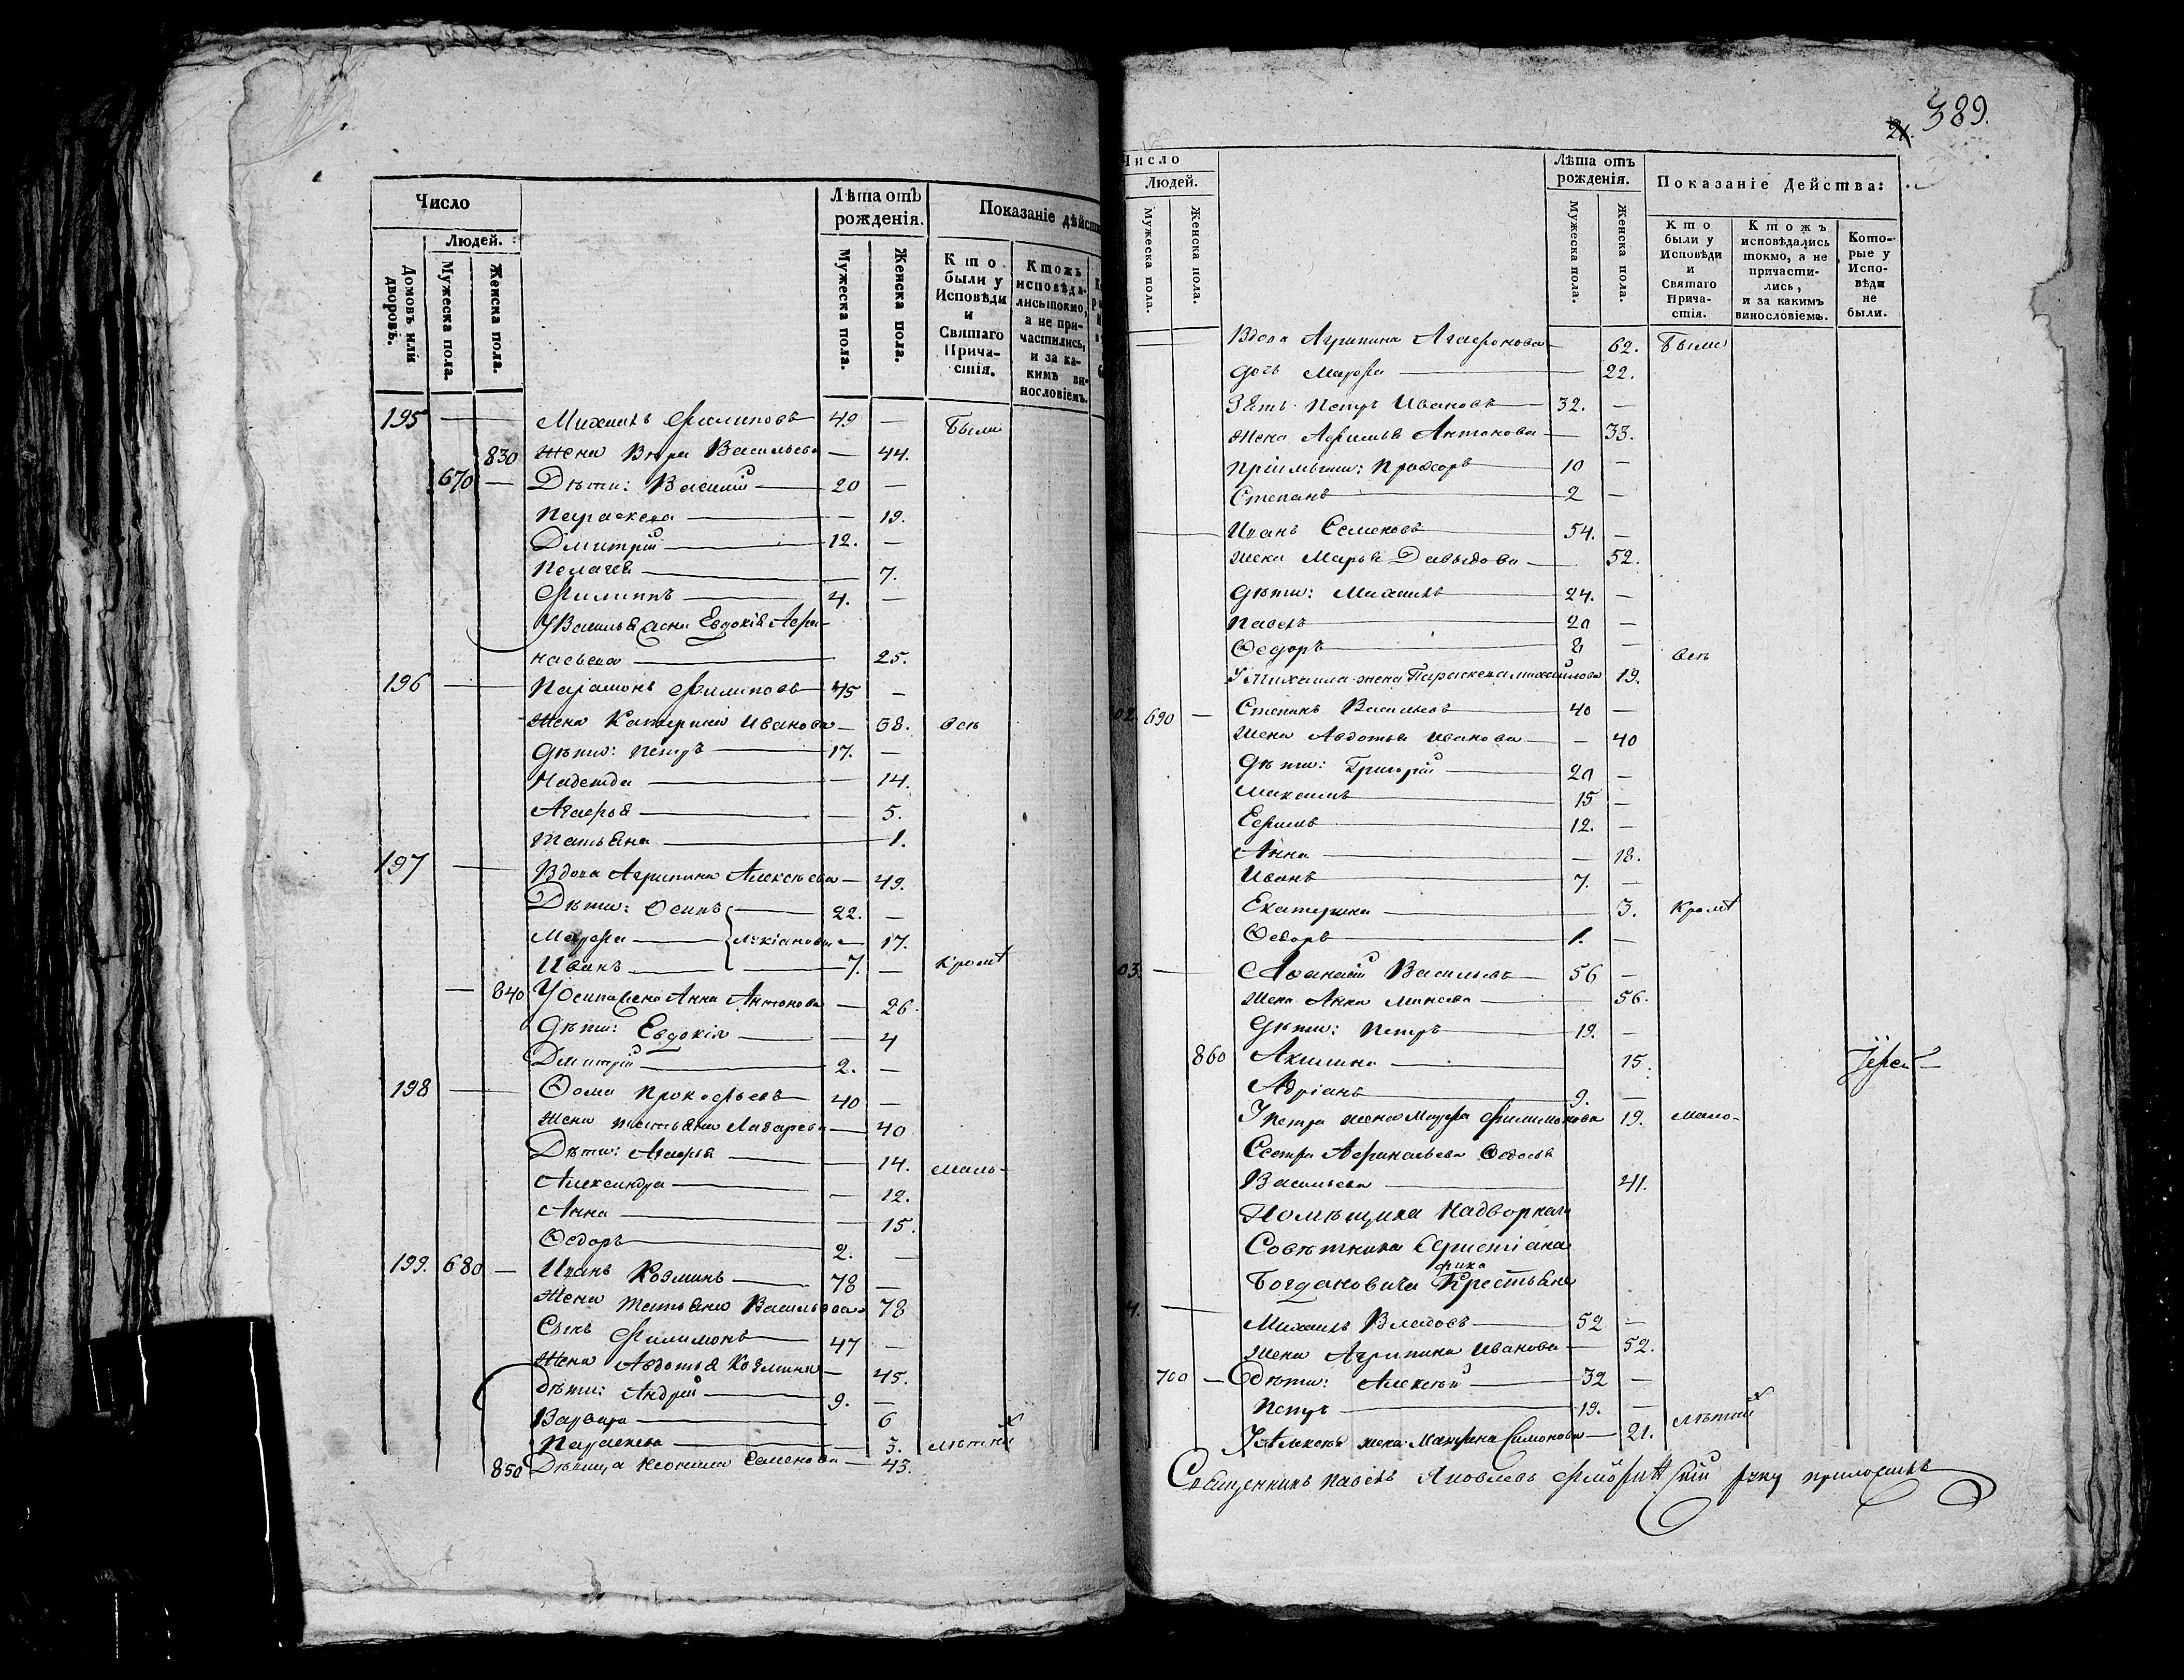 Число
Людей.
Домовъ или дворовъ.
Мужеска пола.
Женска пола.
Лѣта отъ рожденія.
Мужеска пола.
Женска пола.
Показаніе дѣйст
Кто были у Исповѣди и Святаго Прича-стія.
Ктожъ исповѣда-лись токмо, а не при-частились, и за ка-кимъ ви-нословіемъ.
195 — — Михаилъ Филиповъ 49 — были
830 Жена Вера Васильева — 44.
670 — Дѣти: Василій 20 —
Параскева — 19.
Дмитрій 12. —
Пелагея 7.
Филиппъ 4. —
У Василья жена Евдокія Афа-
насьева 25.
196 — Парамонъ Филиповъ 45 —
Жена Катерина Иванова — 38. всѣ
Дѣти: Петръ 17. —
Надежда — 14.
Агафья — 5.
Татьяна 1.
197 — Вдова Агрипина Алексѣева — 49.
Дѣти: Осипъ 22. —
Мавра Лукіановы 17.
Иванъ 7. — кромѣ
— 840 У Осипа жена Анна Антонова — 26.
Дѣти: Евдокія — 4
Дмитрій 2. —
198 — Ѳома Прокофьевъ 40 —
Жена Татьяна Лазарева — 40
Дѣти: Агафья — 14. мало-
Александра — 12.
Анна 15.
Ѳедоръ 2. —
199. 680 — Иванъ Козминъ 78 —
Жена Татьяна Васильева 78
Сынъ Филимонъ 47 —
Жена Авдотья Козмина — 45.
Дѣти: Андрей 9. —
Варвара 6
Параскева — 3. лѣтны
850 Дѣвица Неонила Семенова — 43.
389.
21.
Число
Людей.
Мужеска пола.
Женска пола.
Лѣта отъ рожденія.
Мужеска пола.
Женска пола.
Показаніе Действа:
Кто были у Исповѣди и Святаго Прича-стія.
Ктожъ исповѣдались токмо, а не причасти-лись, и за какимъ винословіемъ.
Кото-рые у Испо-вѣди не были.
Вдова Агрипина Агафонова — 62. были
Дочь Марфа 22.
Зять Петръ Ивановъ 32. —
Жена Афимья Антонова — 33.
Пріимыши: Прохоръ 10 —
Степанъ 2 —
Иванъ Семеновъ 54. —
Жена Марья Давыдова — 52.
Дѣти: Михаилъ 24. —
Павелъ 20 —
Ѳедоръ 8 — всѣ
У Михаила жена Параскева Михайлова 19.
02 690 — Степанъ Васильевъ 40 —
Жена Авдотья Иванова — 40
Дѣти: Григорій 20 —
Максимъ 15 —
Ефимъ 12. —
Анна — 18.
Иванъ 7. —
Екатерина 3. кромѣ
Ѳедоръ 1. —
03. — Аѳанасій Васильевъ 56 —
Жена Анна Минеева 56.
Дѣти: Петръ 19. —
860 Акилина 15.
Адріанъ 9. —
У Петра жена Марфа Филимонова 19. мало-
Сестра Афанасьева Ѳедосья
Васильева 41.
Помѣщика Надворнаго
Совѣтника Христіана
Богдановича Фика Крестьяне
4. — Михаилъ Власовъ 52 —
Жена Агрипина Иванова — 52.
700 — Дѣти: Алексѣй 32 —
Петръ 19. — лѣтны
У Алексѣя жена Матрена Симонова — 21.
Священникъ Павелъ Яковлевъ руку приложилъ